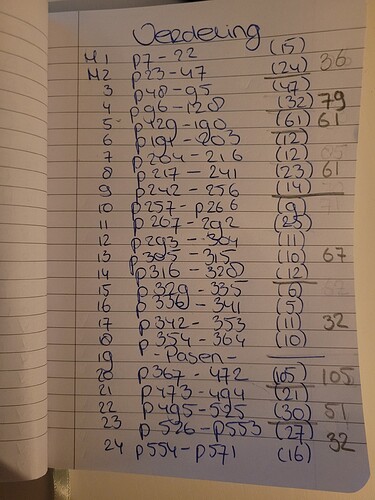 Verdeling
H1 p7-22 (15)
H2 p23-47 (24) 36
3 p48-95 (47)
4 p96-128 (32) 79
5 p129-190 (61) 61
6 p191-203 (12)
7 p204-216 (12)
8 p217-241 (23) 61
9 p242-256 (14)
10 p257-p266 (9)
11 p267-292 (25)
12 p293-304 (11)
13 p305-315 (10) 67
14 p316-328 (12)
15 p329-335 (6)
16 p336-341 (5)
17 p342-353 (11) 32
18 p354-364 (10)
19 -Pasen-
20 p367-472 (105) 105
21 p473-494 (21)
22 p495-525 (30) 51
23 p526-p553 (27)
24 p554-p571 (16) 32